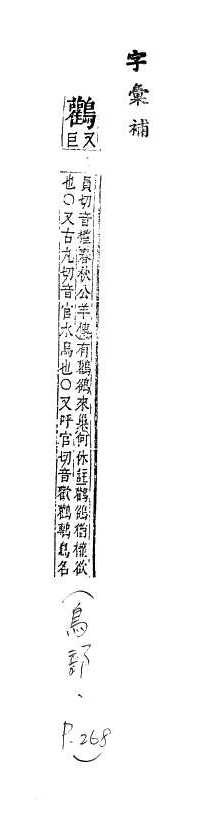 字彙補
鸛又巨
員切音權春秋公羊傳有鸛鵒來巢何休註鸛鵒猶權欲
也○又古丸切音官水鳥也○又呼官切音歡鸛鷒鳥名
(鳥部、P.268)